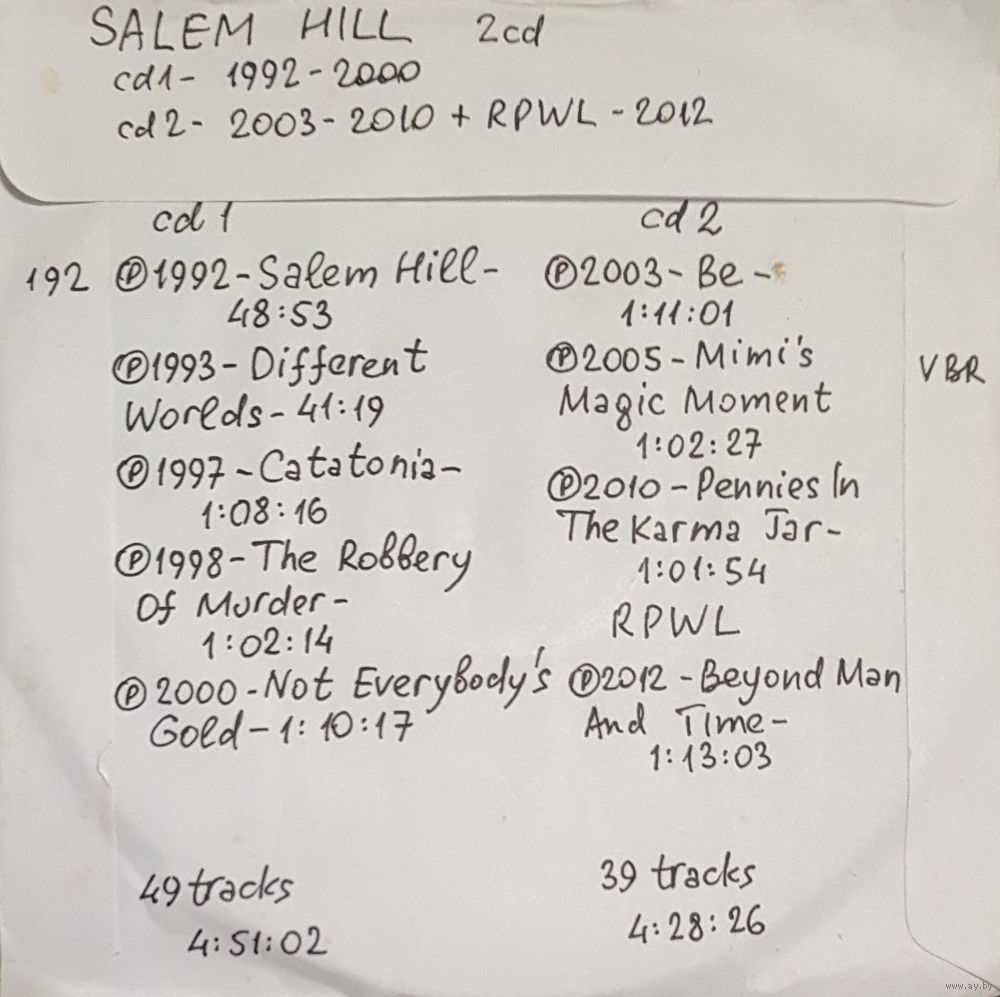 SALEM HILL 2cd
cd1- 1992-2000
cd2- 2003-2010 + RPWL - 2012
cd 1
192 Ⓟ1992-Salem Hill-
48:53
Ⓟ1993-Different
Worlds-41:19
Ⓟ1997-Catatonia-
1:08:16
Ⓟ1998-The Robbery
Of Murder-
1:02:14
Ⓟ2000-Not Everybody's
Gold-1:10:17
49 tracks
4:51:02
cd 2
Ⓟ2003-Be-
1:11:01
Ⓟ2005-Mimi's
Magic Moment
1:02:27
VBR
Ⓟ2010-Pennies In
The Karma Jar-
1:01:54
RPWL
Ⓟ2012-Beyond Man
And Time-
1:13:03
39 tracks
4:28:26
www.ay.by